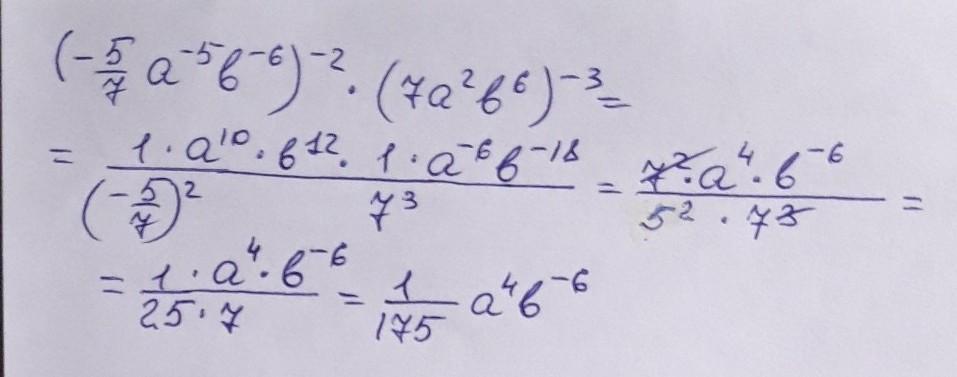 (-5/7 a⁻⁵b⁻⁶)⁻² · (7a²b⁶)⁻³ =
= (1 · a¹⁰ · b¹² · 1 · a⁻⁶b⁻¹⁸) / ((-5/7)² 7³) = (7² · a⁴ · b⁻⁶) / (5² · 7³) =
= (1 · a⁴ · b⁻⁶) / (25 · 7) = 1/175 a⁴b⁻⁶